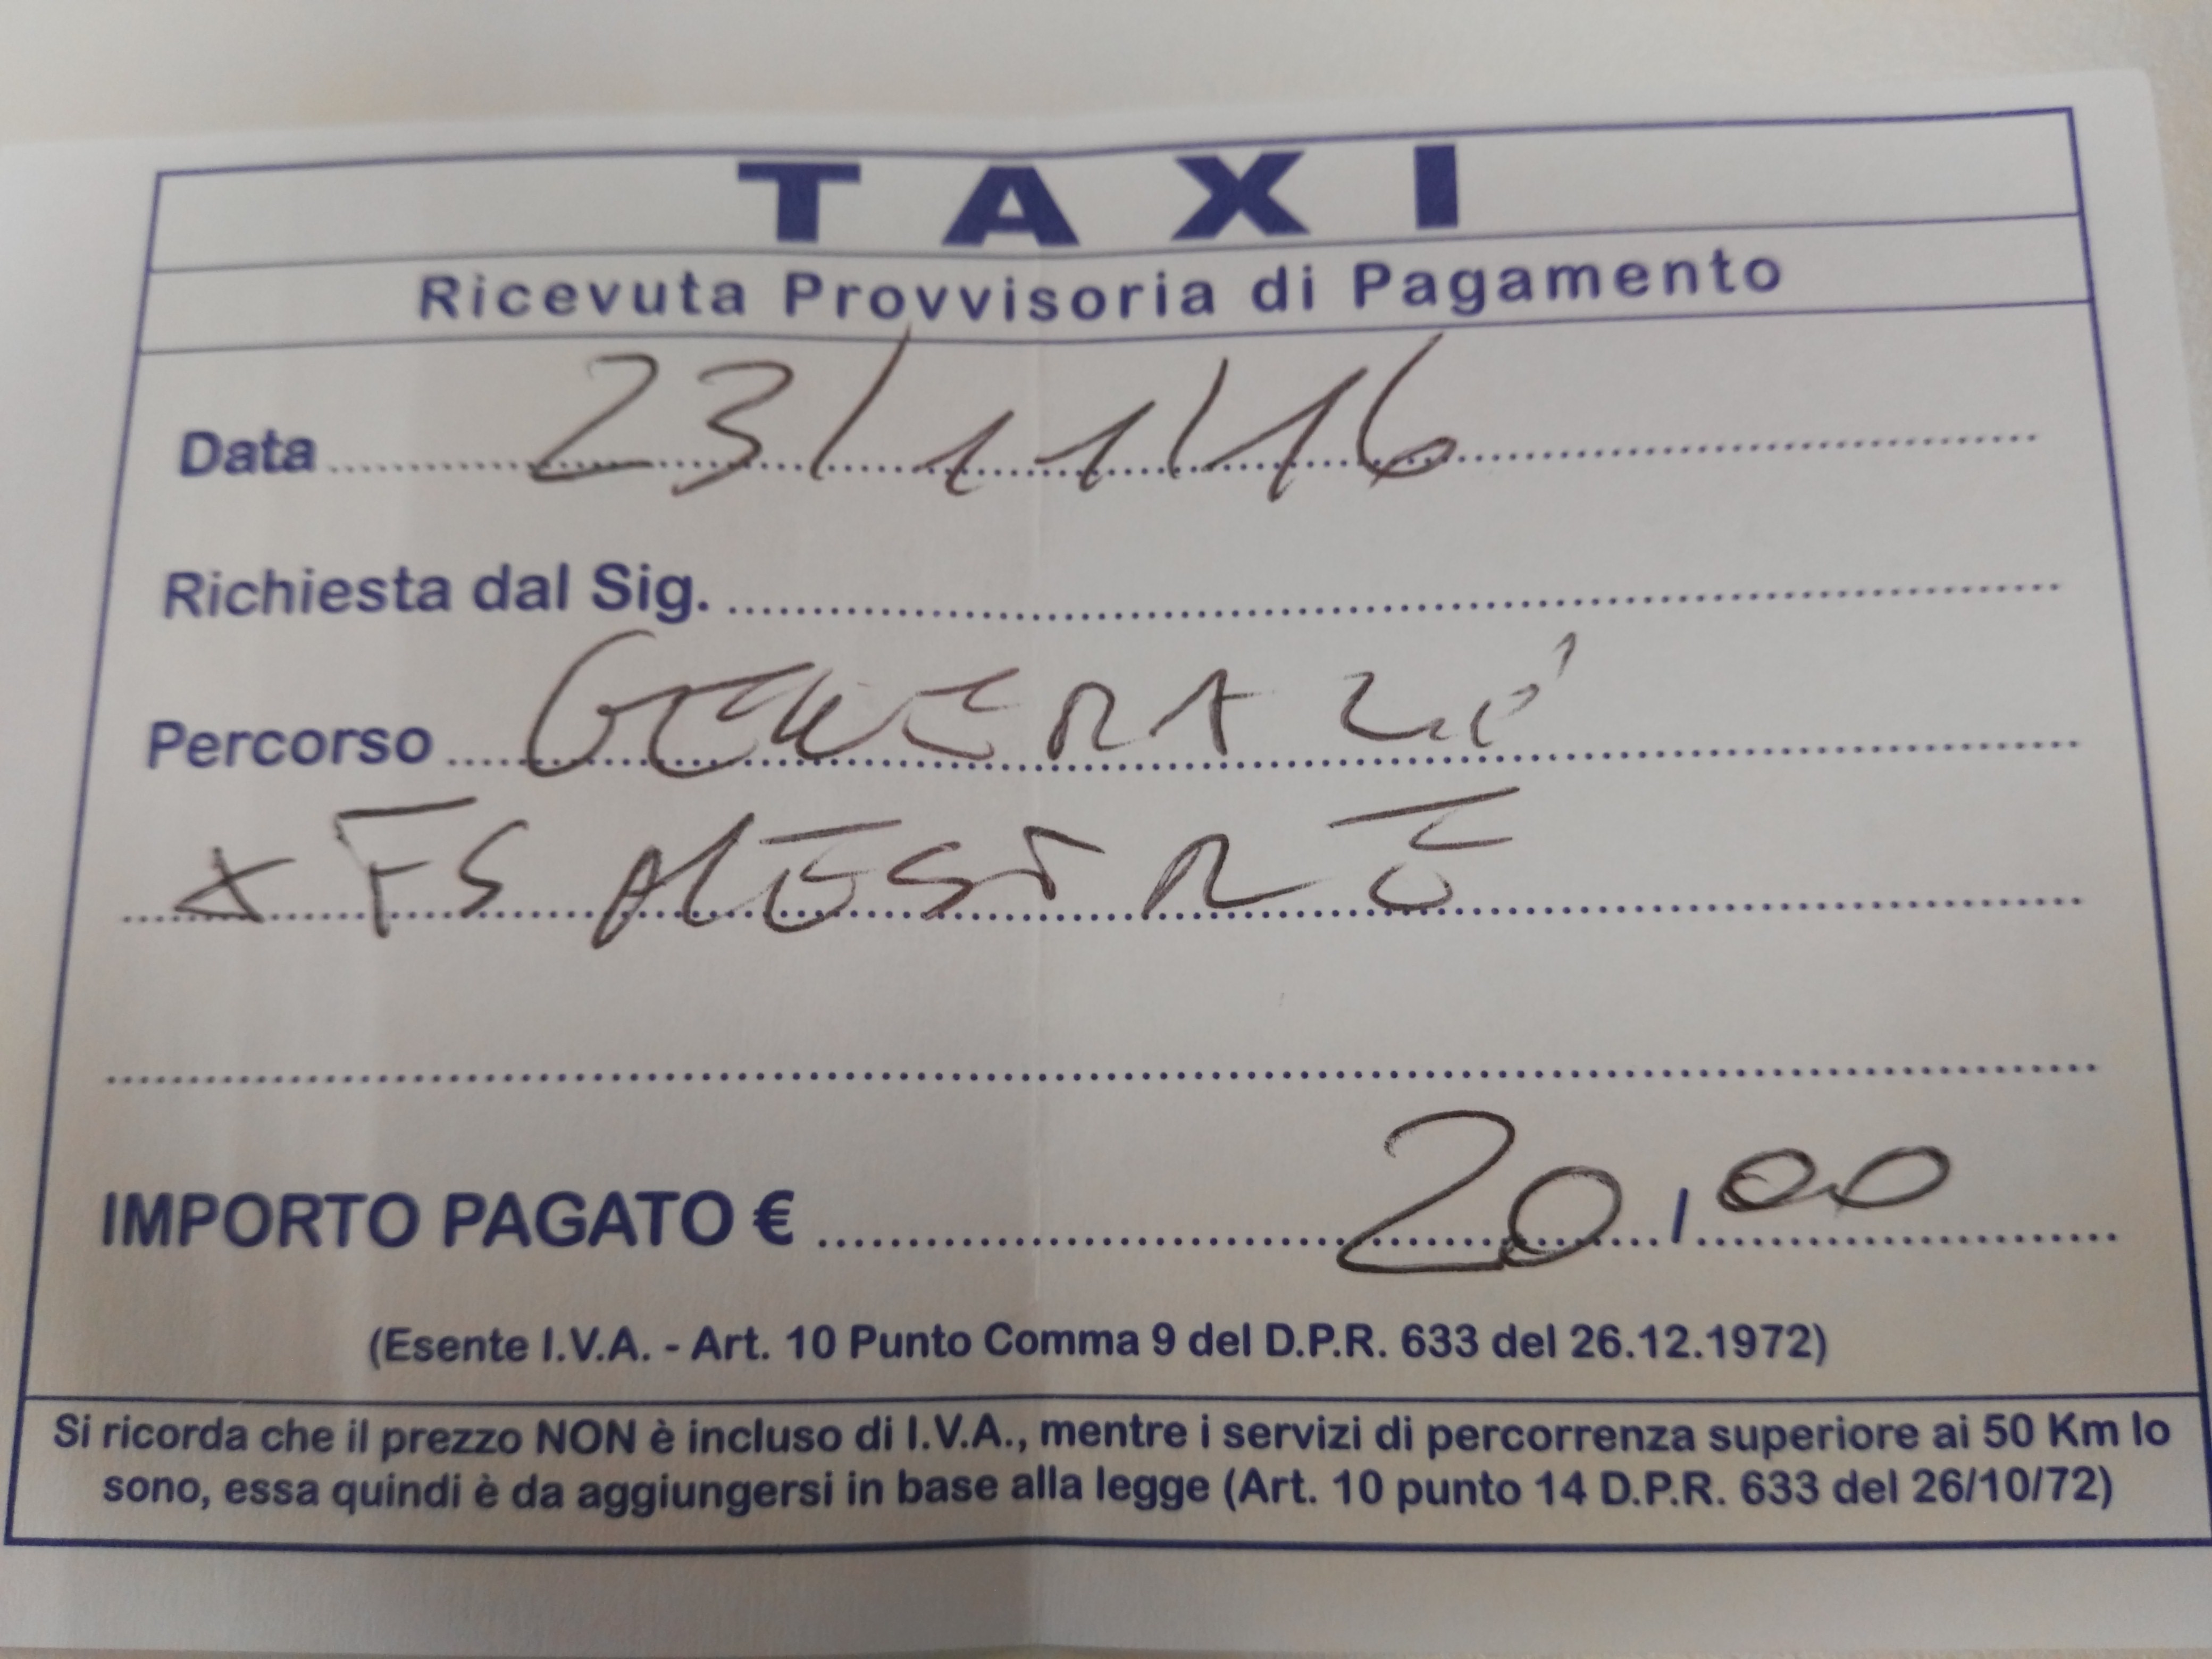 TAXI
Ricevuta Provvisoria di Pagamento
Data 23/11/16
Richiesta dal Sig.
Percorso GENERALI
X FS MESTRE
IMPORTO PAGATO € 20,00
(Esente I.V.A. - Art. 10 Punto Comma 9 del D.P.R. 633 del 26.12.1972)
Si ricorda che il prezzo NON è incluso di I.V.A., mentre i servizi di percorrenza superiore ai 50 Km lo
sono, essa quindi è da aggiungersi in base alla legge (Art. 10 punto 14 D.P.R. 633 del 26/10/72)